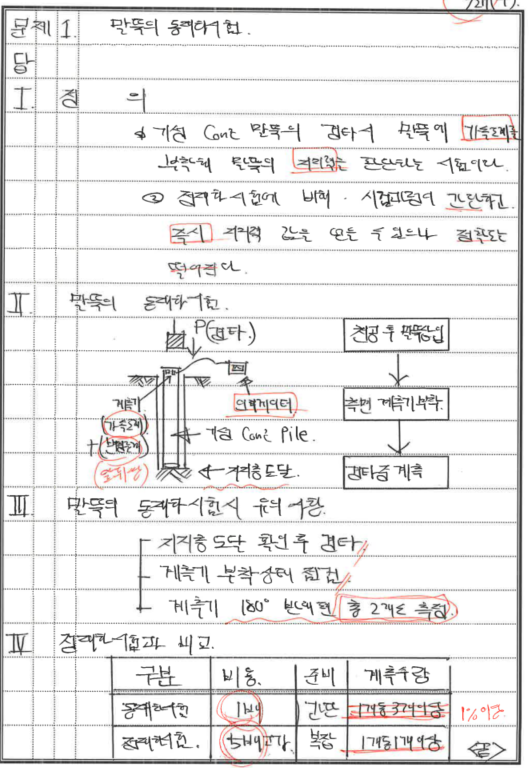 문제 1. 말뚝의 동재하시험.
답
I. 정 의
① 기성 Conc 말뚝의 경타시 말뚝에 가속도계를
부착해 말뚝의 지지력을 판단하는 시험이다.
② 정재하시험에 비해 시험과정이 간단하고
즉시 지지력 값을 얻을 수 있으나 정확도는
떨어진다.
II. 말뚝의 동재하시험.
P(경타)
천공 후 말뚝삽입
계측기
(가속도계)
+(변형률계)
항타분석기
측면 계측기부착
기성 Conc Pile.
지지층 도달.
경타중 계측
III 말뚝의 동재하시험시 유의사항.
지지층 도달 확인 후 경타
계측기 부착상태 점검
계측기 180° 반대편 총 2개소 측정
IV 정재하시험과 비교.
구분 비용 준비 계측수량
동재하시험 1배 간단 1개동 3개이상 1%이상
정재하시험. 5배고가 복잡 1개동 1개이상
<끝>